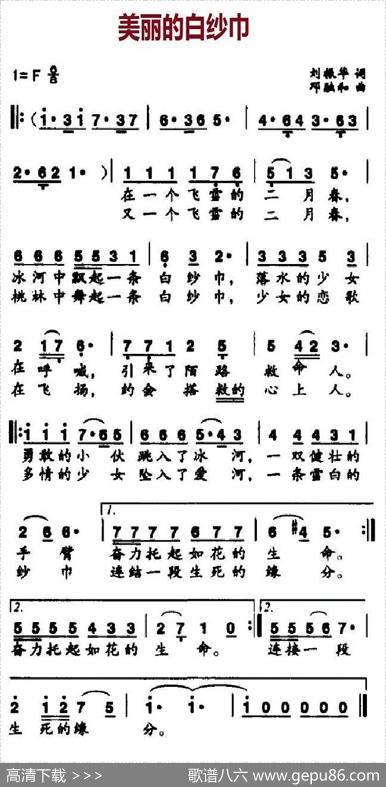 美丽的白纱巾
1=F 6/8
刘振华 词
邓融和 曲
‖:(i·3i 7·37 | 6·36 5· | 4·64 3·63 |
2·62 1·) | 1 1 1 1 7 6 | 5 1 3 5· |
在一个飞雪的 二月春,
又一个飞雪的 二月春,
6 6 6 5 5 3 1 | 6 3 2· | 3 3 3 5 3 |
冰河中飘起一条 白纱巾, 落水的少女
桃林中舞起一条 白纱巾, 少女的恋歌
2 1 7 6· | 7 7 1 2 5 | 5 4 2 3· |
在呼喊, 引来了陌路 救命人。
在飞扬, 约会搭救的 心上人。
‖: i i i 7·6 5 | 6 6 6 5·4 3 | 4 4 4 3 1 |
勇敢的小伙 跳入了冰河, 一双健壮的
多情的少女 坠入了爱河, 一条雪白的
1.
2 6 6· | 7 7 7 7 6 7 7 | 6 #4 5· :‖
手臂 奋力托起如花的 生命。
纱巾 连结一段生死的 缘分。
2. 2.
5 5 5 5 4 3 3 | 2 7 1 0 :‖ 5 5 5 6 7· |
奋力托起如花的 生命。 连接一段
2 i 2 7 5 | i· i· | i 0 0 0 0 0 ‖
生死的缘 分。
高清下载 >>> 歌谱八六 www.gepu86.com